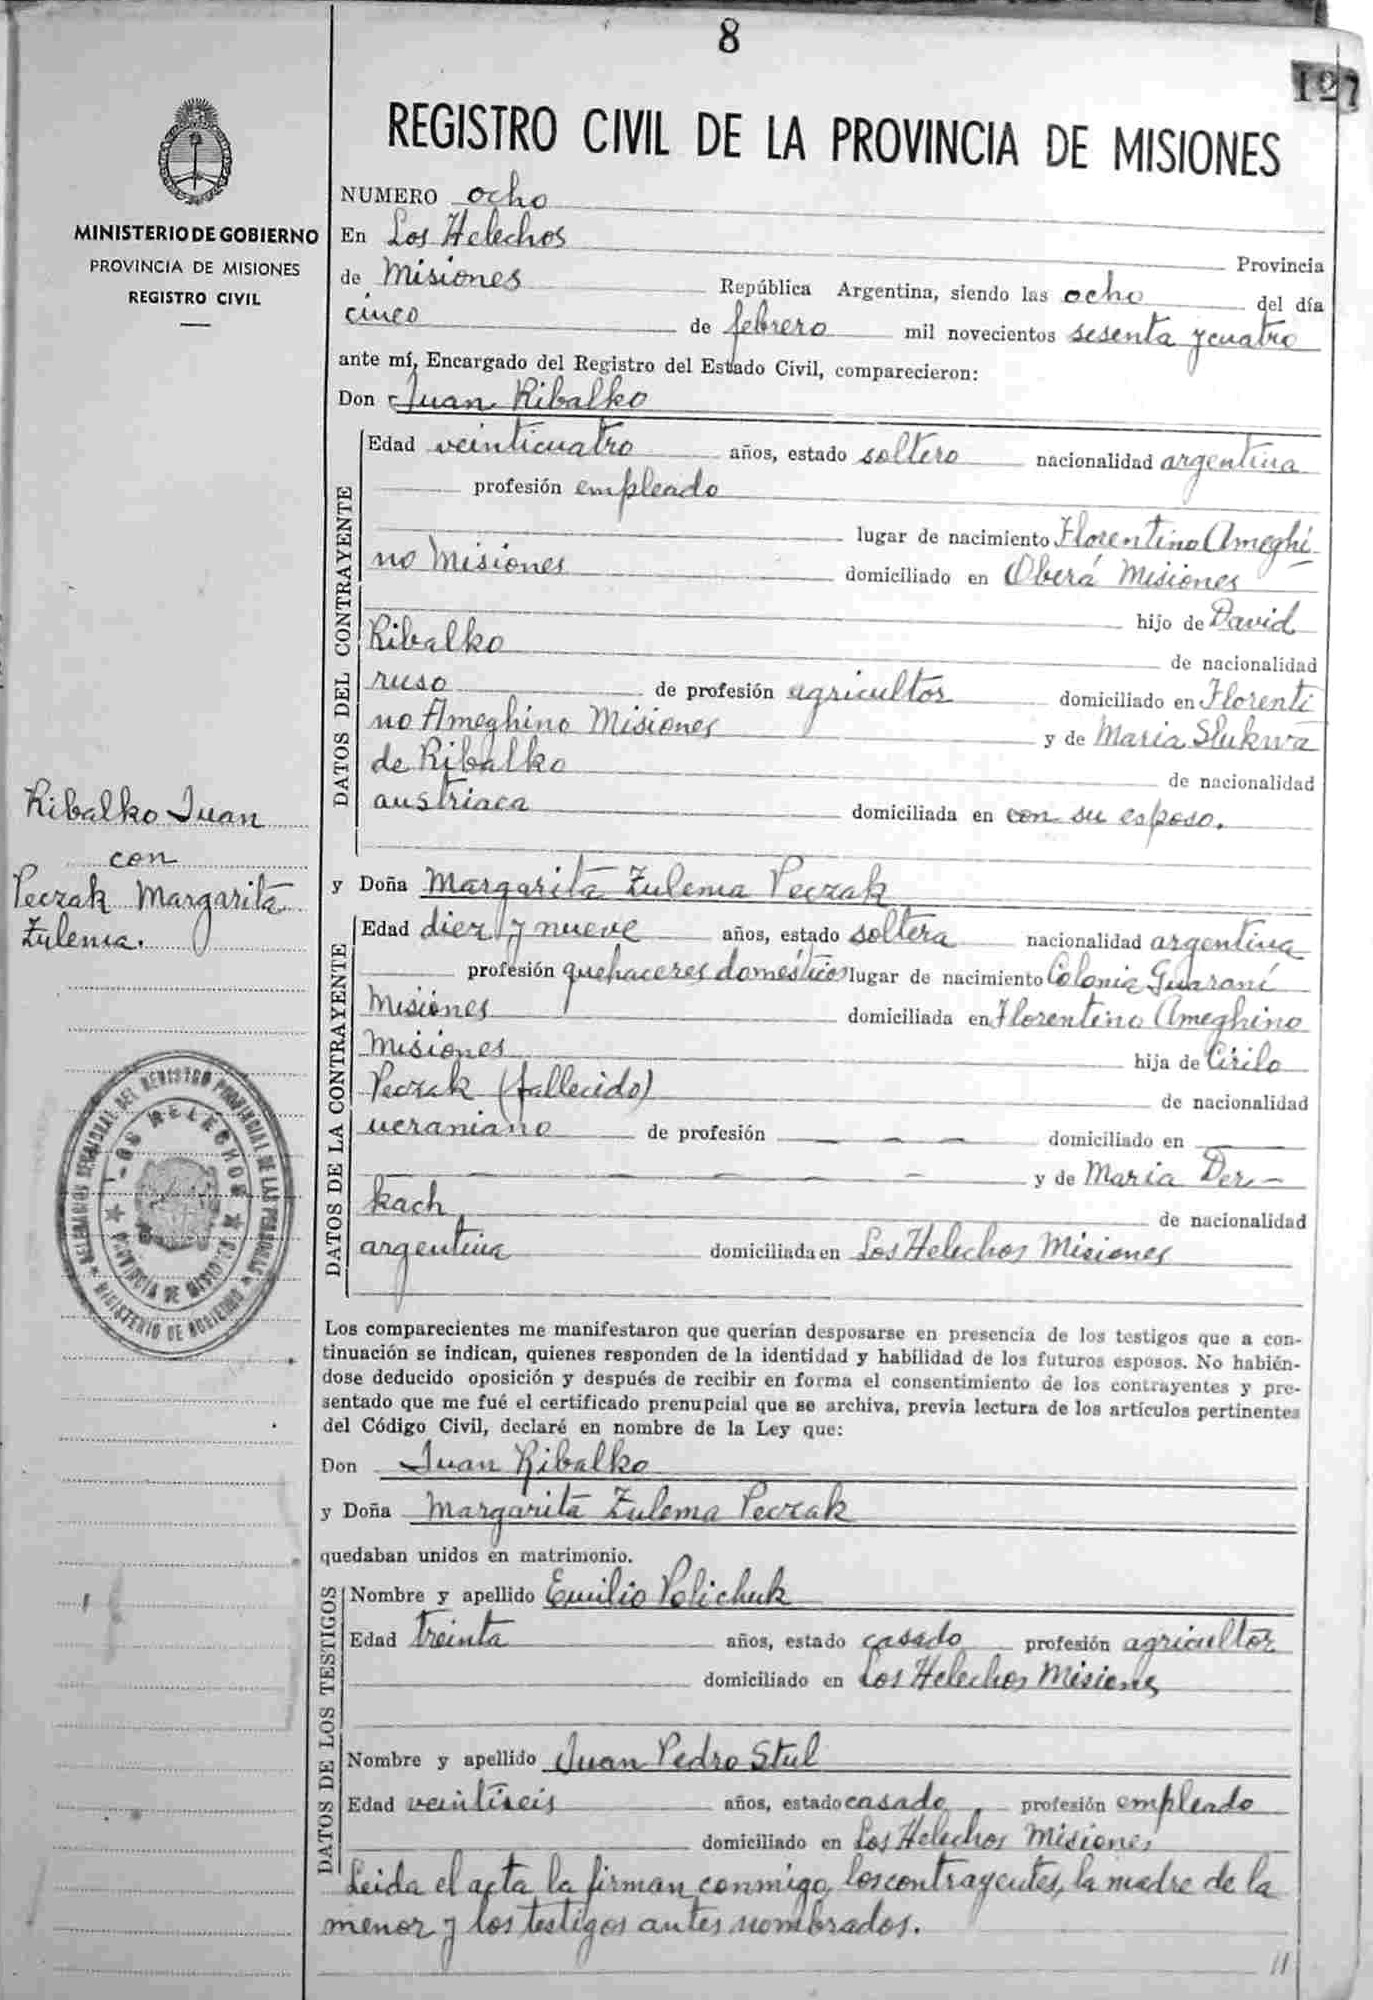 8
127
REGISTRO CIVIL DE LA PROVINCIA DE MISIONES
MINISTERIO DE GOBIERNO
PROVINCIA DE MISIONES
REGISTRO CIVIL
NUMERO ocho
En Los Helechos Provincia
de Misiones República Argentina, siendo las ocho del día
cinco de febrero mil novecientos sesenta y cuatro
ante mí, Encargado del Registro del Estado Civil, comparecieron:
Don Juan Ribalko
DATOS DEL CONTRAYENTE
Edad veinticuatro años, estado soltero nacionalidad argentina
profesión empleado
lugar de nacimiento Florentino Ameghi-
no Misiones domiciliado en Oberá Misiones
hijo de David
Ribalko de nacionalidad
ruso de profesión agricultor domiciliado en Florenti
no Ameghino Misiones y de Maria Slukwa
de Ribalko de nacionalidad
austriaca domiciliada en con su esposo.
Ribalko Juan
con
Peczak Margarita
Zulema.
y Doña Margarita Zulema Peczak
DATOS DE LA CONTRAYENTE
Edad diez y nueve años, estado soltera nacionalidad argentina
profesión quehaceres domésticos lugar de nacimiento Colonia Guaraní
Misiones domiciliada en Florentino Ameghino
Misiones hija de Cirilo
Peczak (fallecido) de nacionalidad
ucraniano de profesión — — — domiciliado en —
— — — — — y de Maria Der-
kach de nacionalidad
argentina domiciliada en Los Helechos Misiones
DELEGACION SECCIONAL DEL REGISTRO PROVINCIAL DE LAS PERSONAS
MINISTERIO DE GOBIERNO
LOS HELECHOS
PROVINCIA DE MISIONES
Los comparecientes me manifestaron que querían desposarse en presencia de los testigos que a con-
tinuación se indican, quienes responden de la identidad y habilidad de los futuros esposos. No habién-
dose deducido oposición y después de recibir en forma el consentimiento de los contrayentes y pre-
sentado que me fué el certificado prenupcial que se archiva, previa lectura de los artículos pertinentes
del Código Civil, declaré en nombre de la Ley que:
Don Juan Ribalko
y Doña Margarita Zulema Peczak
quedaban unidos en matrimonio.
DATOS DE LOS TESTIGOS
Nombre y apellido Emilio Polichuk
Edad treinta años, estado casado profesión agricultor
domiciliado en Los Helechos Misiones
Nombre y apellido Juan Pedro Stul
Edad veintiseis años, estado casado profesión empleado
domiciliado en Los Helechos Misiones
Leida el acta la firman conmigo, los contrayentes, la madre de la
menor y los testigos antes nombrados.
//